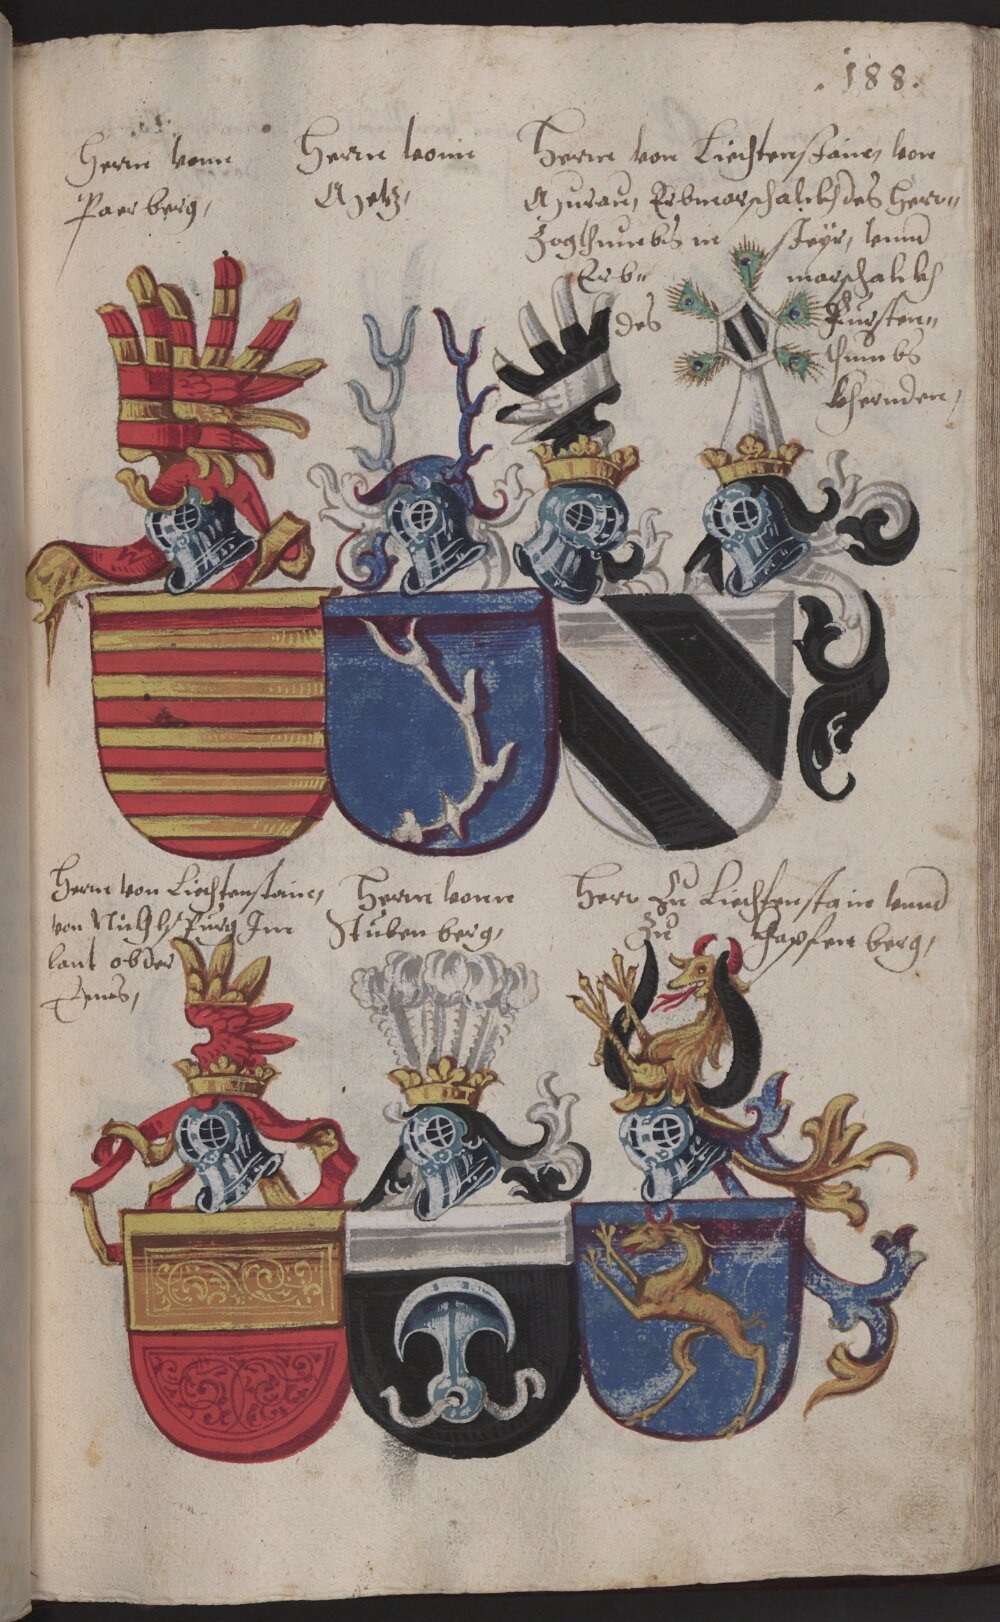 .188.
Herrn vonn
Paerberg,
Herrn vonn
Metz,
Herrn von Liechtenstainn, von
Murau, Erbmarschalckh des Herr„
Zogthumbs in Steyr, vnnd
Erb„ marschalckh
des Fürsten„
thumbs
Khernden,
Herrn von Liechtenstainn,
von Purg Im
lant ob der
Enns,
Herrn vonn
Stubenberg,
Herr Zu Liechtenstain vnnd
Zu Gapfenberg,